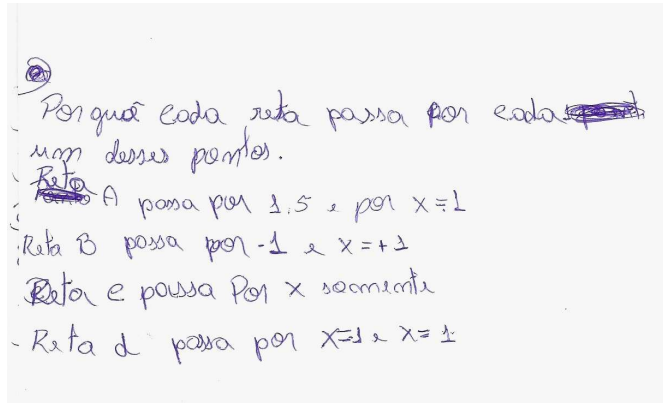 Por quê cada reta passa por cada
um desses pontos.
Reta A passa por 1.5 e por x=1
Reta B passa por -1 e x=+1
Reta c passa Por x somente
- Reta d passa por x=1 e x=1